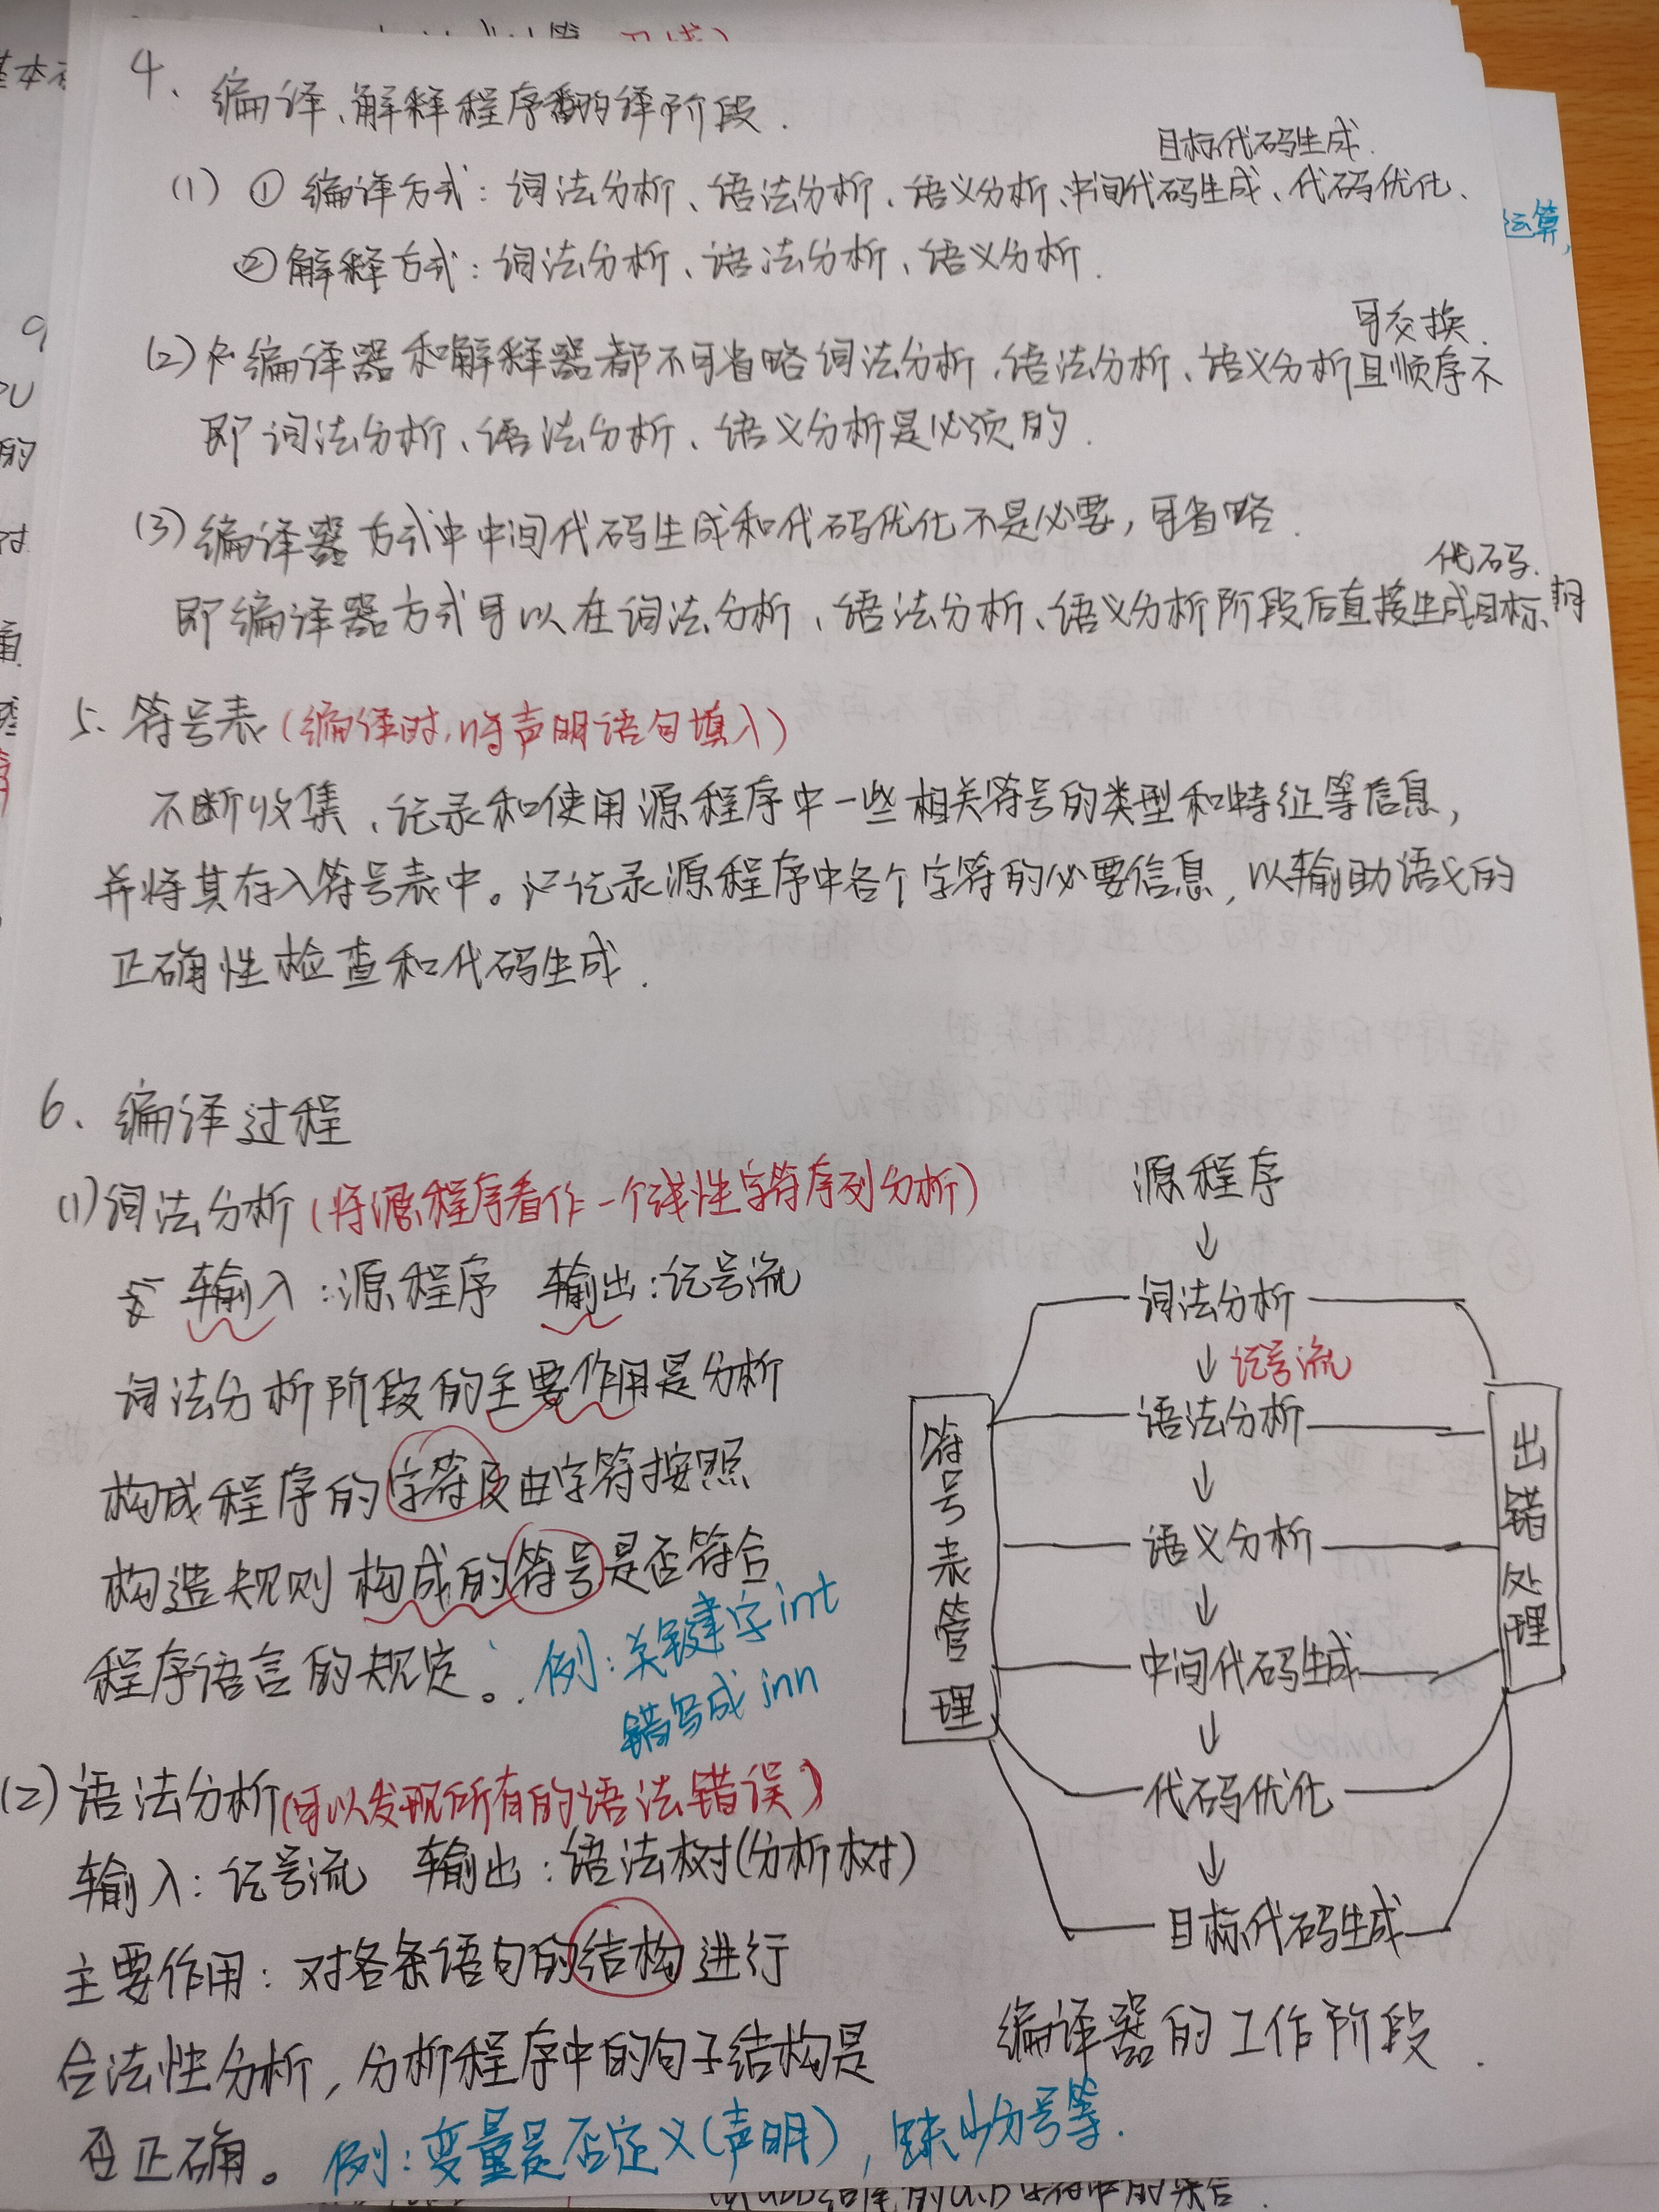 4、编译、解释程序翻译的阶段.
目标代码生成.
(1) ① 编译方式：词法分析、语法分析、语义分析、中间代码生成、代码优化、
② 解释方式：词法分析、语法分析、语义分析.
可交换.
(2) 编译器和解释器都不可省略词法分析、语法分析、语义分析且顺序不
即词法分析、语法分析、语义分析是必须的.
(3) 编译器方式中中间代码生成和代码优化不是必要，可省略.
代码.
即编译器方式可以在词法分析、语法分析、语义分析阶段后直接生成目标
5、符号表(编译时，将声明语句填入)
不断收集、记录和使用源程序中一些相关符号的类型和特征等信息，
并将其存入符号表中。记录源程序中各个字符的必要信息，以辅助语义的
正确性检查和代码生成.
6、编译过程
(1) 词法分析(将源程序看作一个线性字符序列分析)
输入：源程序 输出：记号流
词法分析阶段的主要作用是分析
构成程序的字符及由字符按照
构造规则构成的符号是否符合
程序语言的规定。例：关键字int
错写成inn
(2) 语法分析(可以发现所有的语法错误)
输入：记号流 输出：语法树(分析树)
主要作用：对各条语句的结构进行
合法性分析，分析程序中的句子结构是
否正确。例：变量是否定义(声明)，缺少分号等.
源程序
↓
词法分析
↓ 记号流
语法分析
↓
语义分析
↓
中间代码生成
↓
代码优化
↓
目标代码生成
符号表管理
出错处理
编译器的工作阶段.
运算，